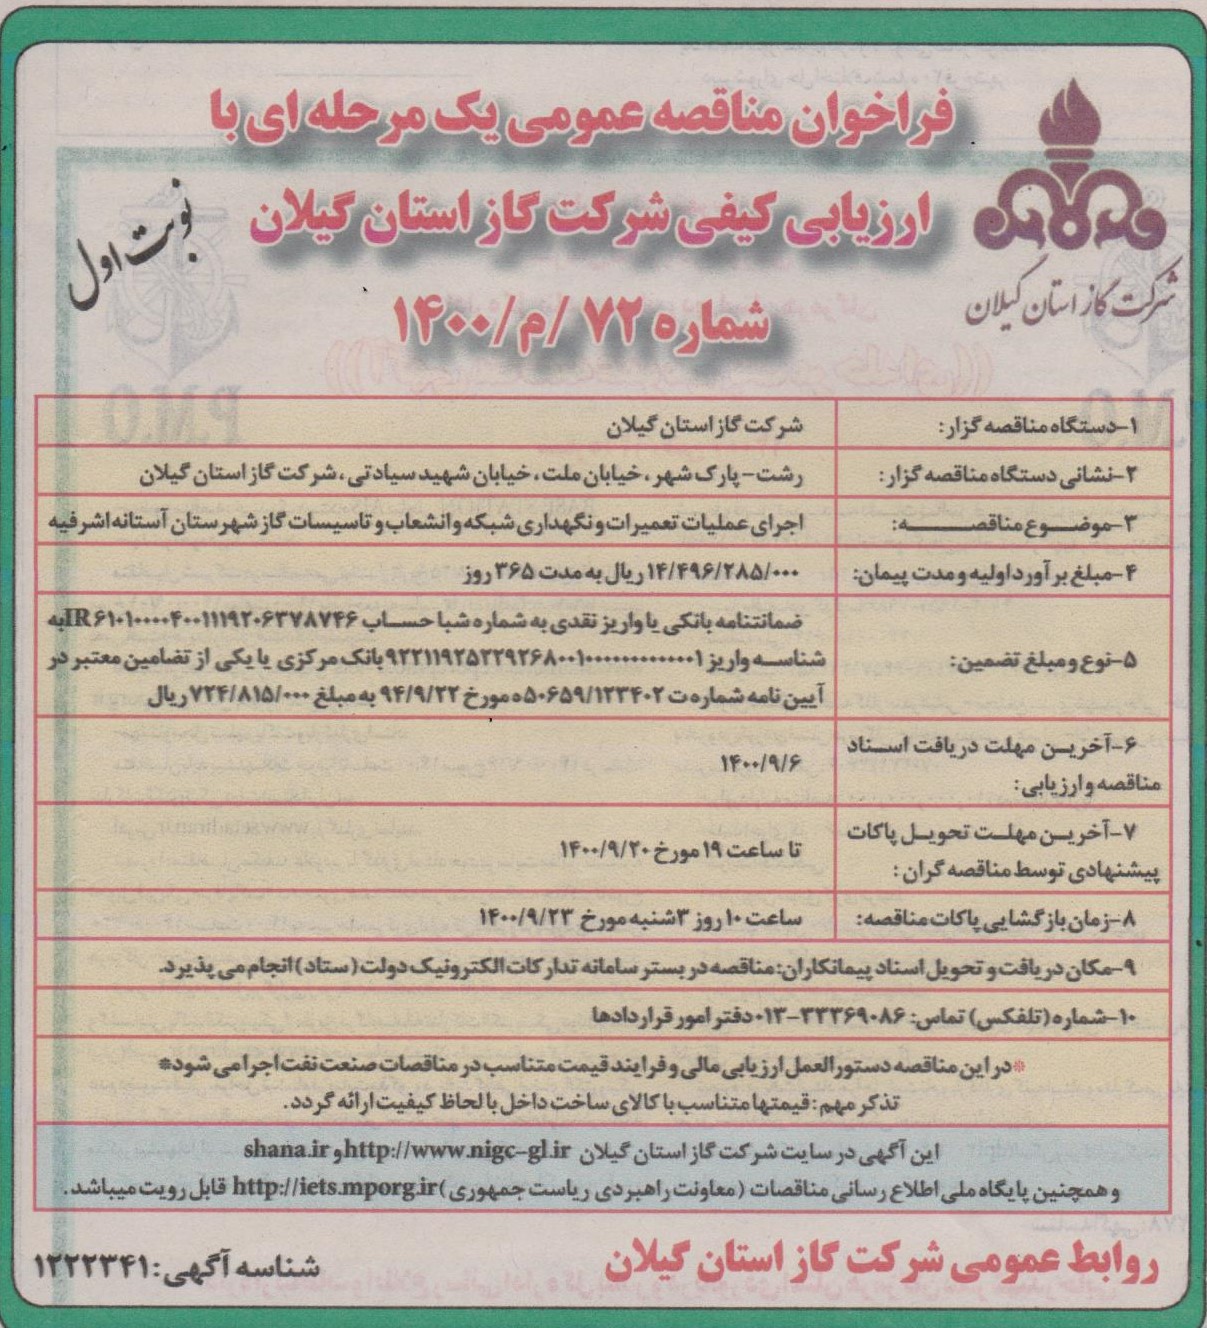 فراخوان مناقصه عمومی یک مرحله ای با
ارزیابی کیفی شرکت گاز استان گیلان
شماره ۷۲ /م/۱۴۰۰
نوبت اول
شرکت گاز استان گیلان
۱-دستگاه مناقصه گزار: شرکت گاز استان گیلان
۲-نشانی دستگاه مناقصه گزار: رشت- پارک شهر، خیابان ملت، خیابان شهید سیادتی، شرکت گاز استان گیلان
۳-موضوع مناقصه: اجرای عملیات تعمیرات و نگهداری شبکه و انشعاب و تاسیسات گاز شهرستان آستانه اشرفیه
۴-مبلغ برآورد اولیه و مدت پیمان: ۱۴/۴۹۶/۲۸۵/۰۰۰ ریال به مدت ۳۶۵ روز
۵-نوع و مبلغ تضمین: ضمانتنامه بانکی یا واریز نقدی به شماره شبا حساب IR۶۱۰۱۰۰۰۰۴۰۰۱۱۱۹۲۰۶۳۷۸۷۴۶ به
شناسه واریز ۹۲۲۱۱۹۲۵۲۲۹۲۶۸۰۰۱۰۰۰۰۰۰۰۰۰۰۰۰۱ بانک مرکزی یا یکی از تضامین معتبر در
آیین نامه شماره ت ۵۰۶۵۹/۱۲۳۴۰۲ه مورخ ۹۴/۹/۲۲ به مبلغ ۷۲۴/۸۱۵/۰۰۰ ریال
۶-آخرین مهلت دریافت اسناد
مناقصه و ارزیابی: ۱۴۰۰/۹/۶
۷-آخرین مهلت تحویل پاکات
پیشنهادی توسط مناقصه گران : تا ساعت ۱۹ مورخ ۱۴۰۰/۹/۲۰
۸-زمان بازگشایی پاکات مناقصه: ساعت ۱۰ روز ۳شنبه مورخ ۱۴۰۰/۹/۲۳
۹-مکان دریافت و تحویل اسناد پیمانکاران: مناقصه در بستر سامانه تدارکات الکترونیک دولت (ستاد) انجام می پذیرد.
۱۰-شماره (تلفکس) تماس: ۳۳۳۶۹۰۸۶-۰۱۳ دفتر امور قراردادها
*در این مناقصه دستورالعمل ارزیابی مالی و فرایند قیمت متناسب در مناقصات صنعت نفت اجرا می شود*
تذکر مهم: قیمتها متناسب با کالای ساخت داخل با لحاظ کیفیت ارائه گردد.
این آگهی در سایت شرکت گاز استان گیلان http://www.nigc-gl.ir و shana.ir
و همچنین پایگاه ملی اطلاع رسانی مناقصات (معاونت راهبردی ریاست جمهوری) http://iets.mporg.ir قابل رویت میباشد.
روابط عمومی شرکت گاز استان گیلان
شناسه آگهی: ۱۲۲۲۳۴۱